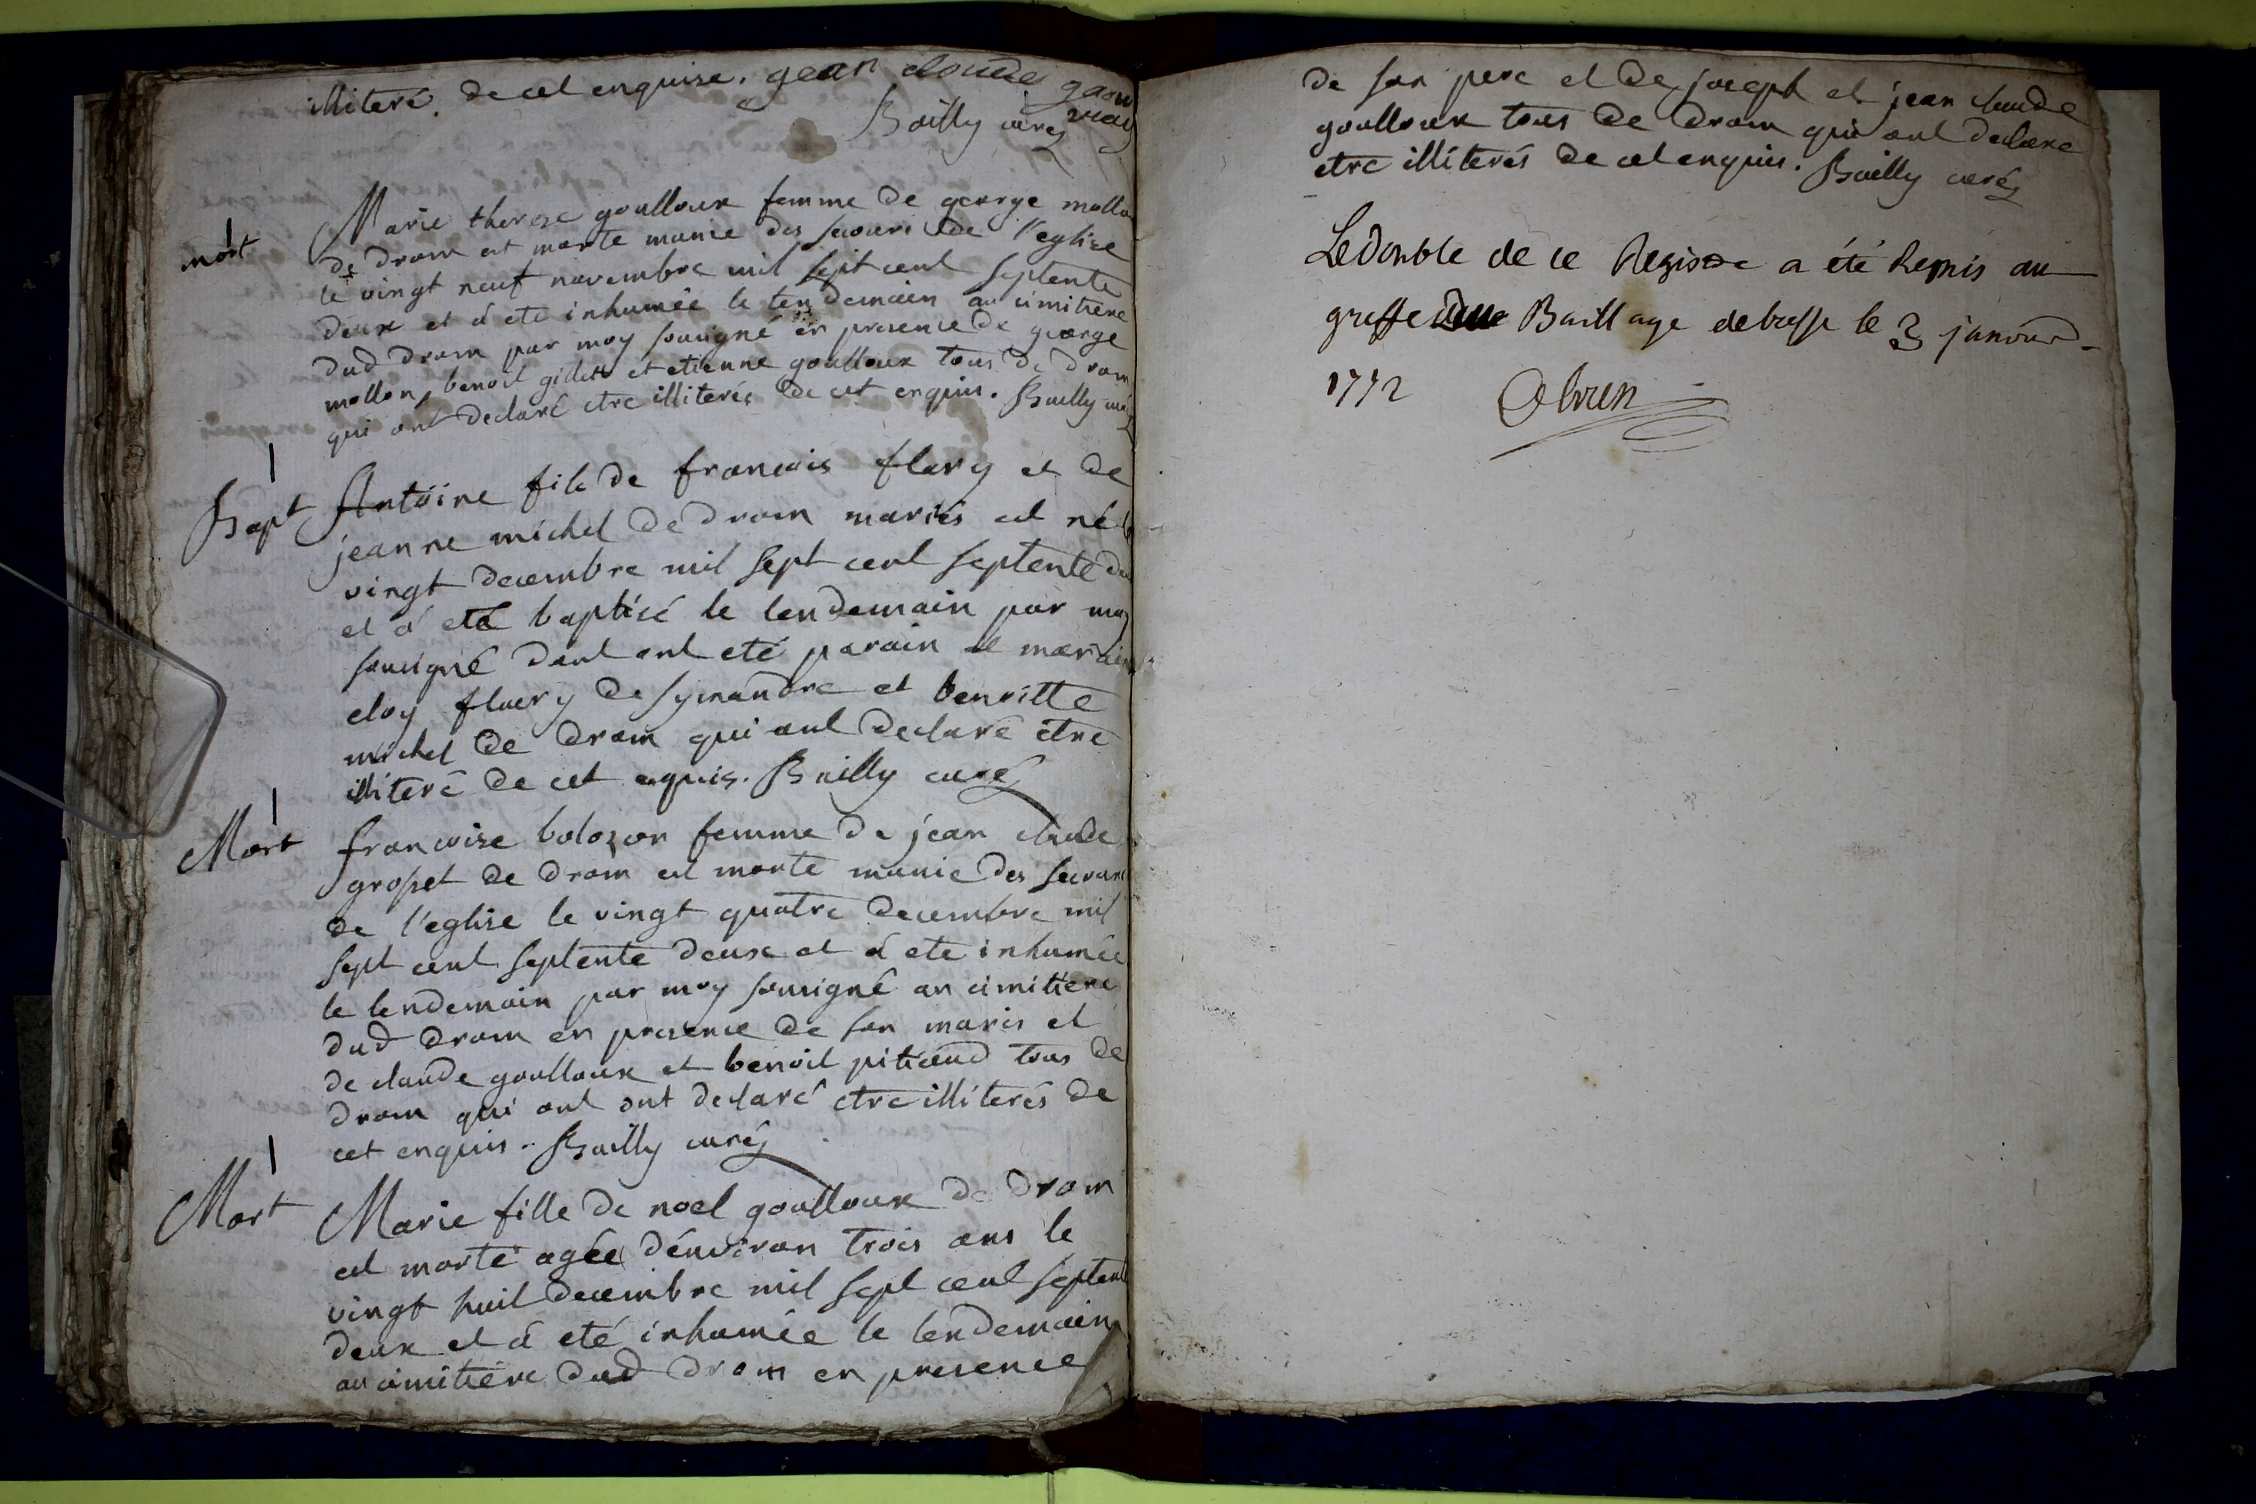 illiteré. de cet enquise. gean cloude
Bailly curé
mort
Marie therese goulloux femme de george mollon
de drom est morte munie des secours de l'eglise
le vingt neuf novembre mil sept cent septente
deux et á eté inhumée le lendemain au cimitiere
dud drom par moy sousigné en presence de george
mollon, benoit gidett et etienne goulloux tous de drom
qui ont declaré etre illiterés de cet enquis. Bailly curé
Bapt
Antoine fils de francois flory et de
jeanne michel de drom mariés est né le
vingt decembre mil sept cent septente deux
et á eté baptisé le lendemain par moy
sousigné dont ont eté parain et maraine
eloy fluery de symandre et benoitte
michel de drom qui ont declaré etre
illiteré de cet enquis. Bailly curé
Mort
francoise bolozon femme de jean claude
groset de drom est morte munie des secours
de l'eglise le vingt quatre decembre mil
sept cent septente deux et á ete inhumée
le lendemain par moy sousigné au cimitiere
dud drom en presence de son maris et
de claude goulloux et benoit pitioud tous de
drom qui ont ont declaré etre illiterés de
cet enquis. Bailly curé
Mort
Marie fille de noel goulloux de drom
est morte agée d'environ trois ans le
vingt huit decembre mil sept cent septente
deux et á eté inhumée le lendemain
au cimitiere dud drom en presence
de son pere et de joseph et jean claude
goulloux tous de drom qui ont declaré
etre illiterés de cet enquis. Bailly curé
Le double de ce Registre a été Remis au
greffe Baillage de bresse le 3 janvier
1772